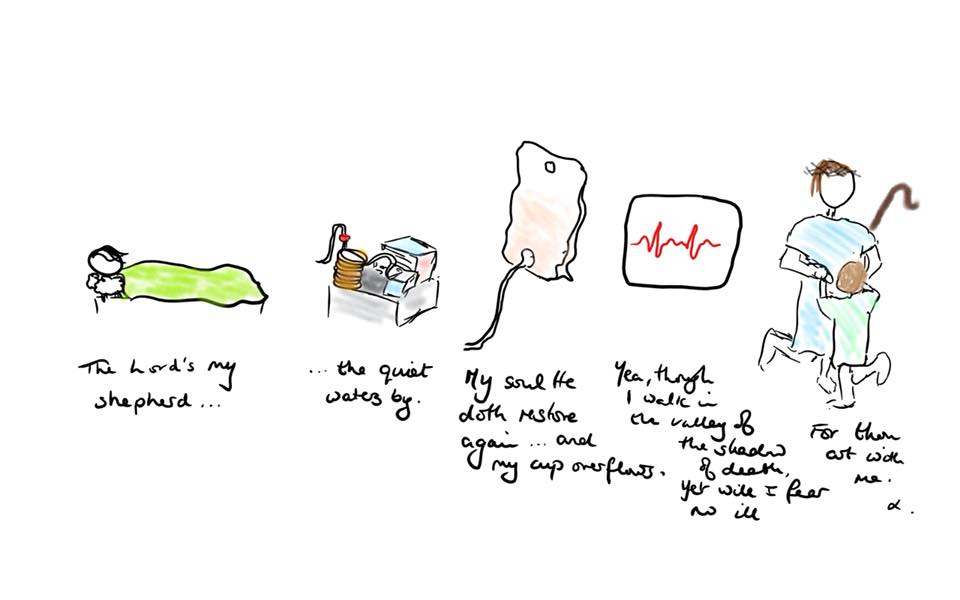 The Lord's my
shepherd ...
... the quiet
waters by.
My soul He
doth restore
again ... and
my cup overflows.
Yea, though
I walk in
the valley of
the shadow
of death,
yet will I fear
no ill
For thou
art with
me.
α.